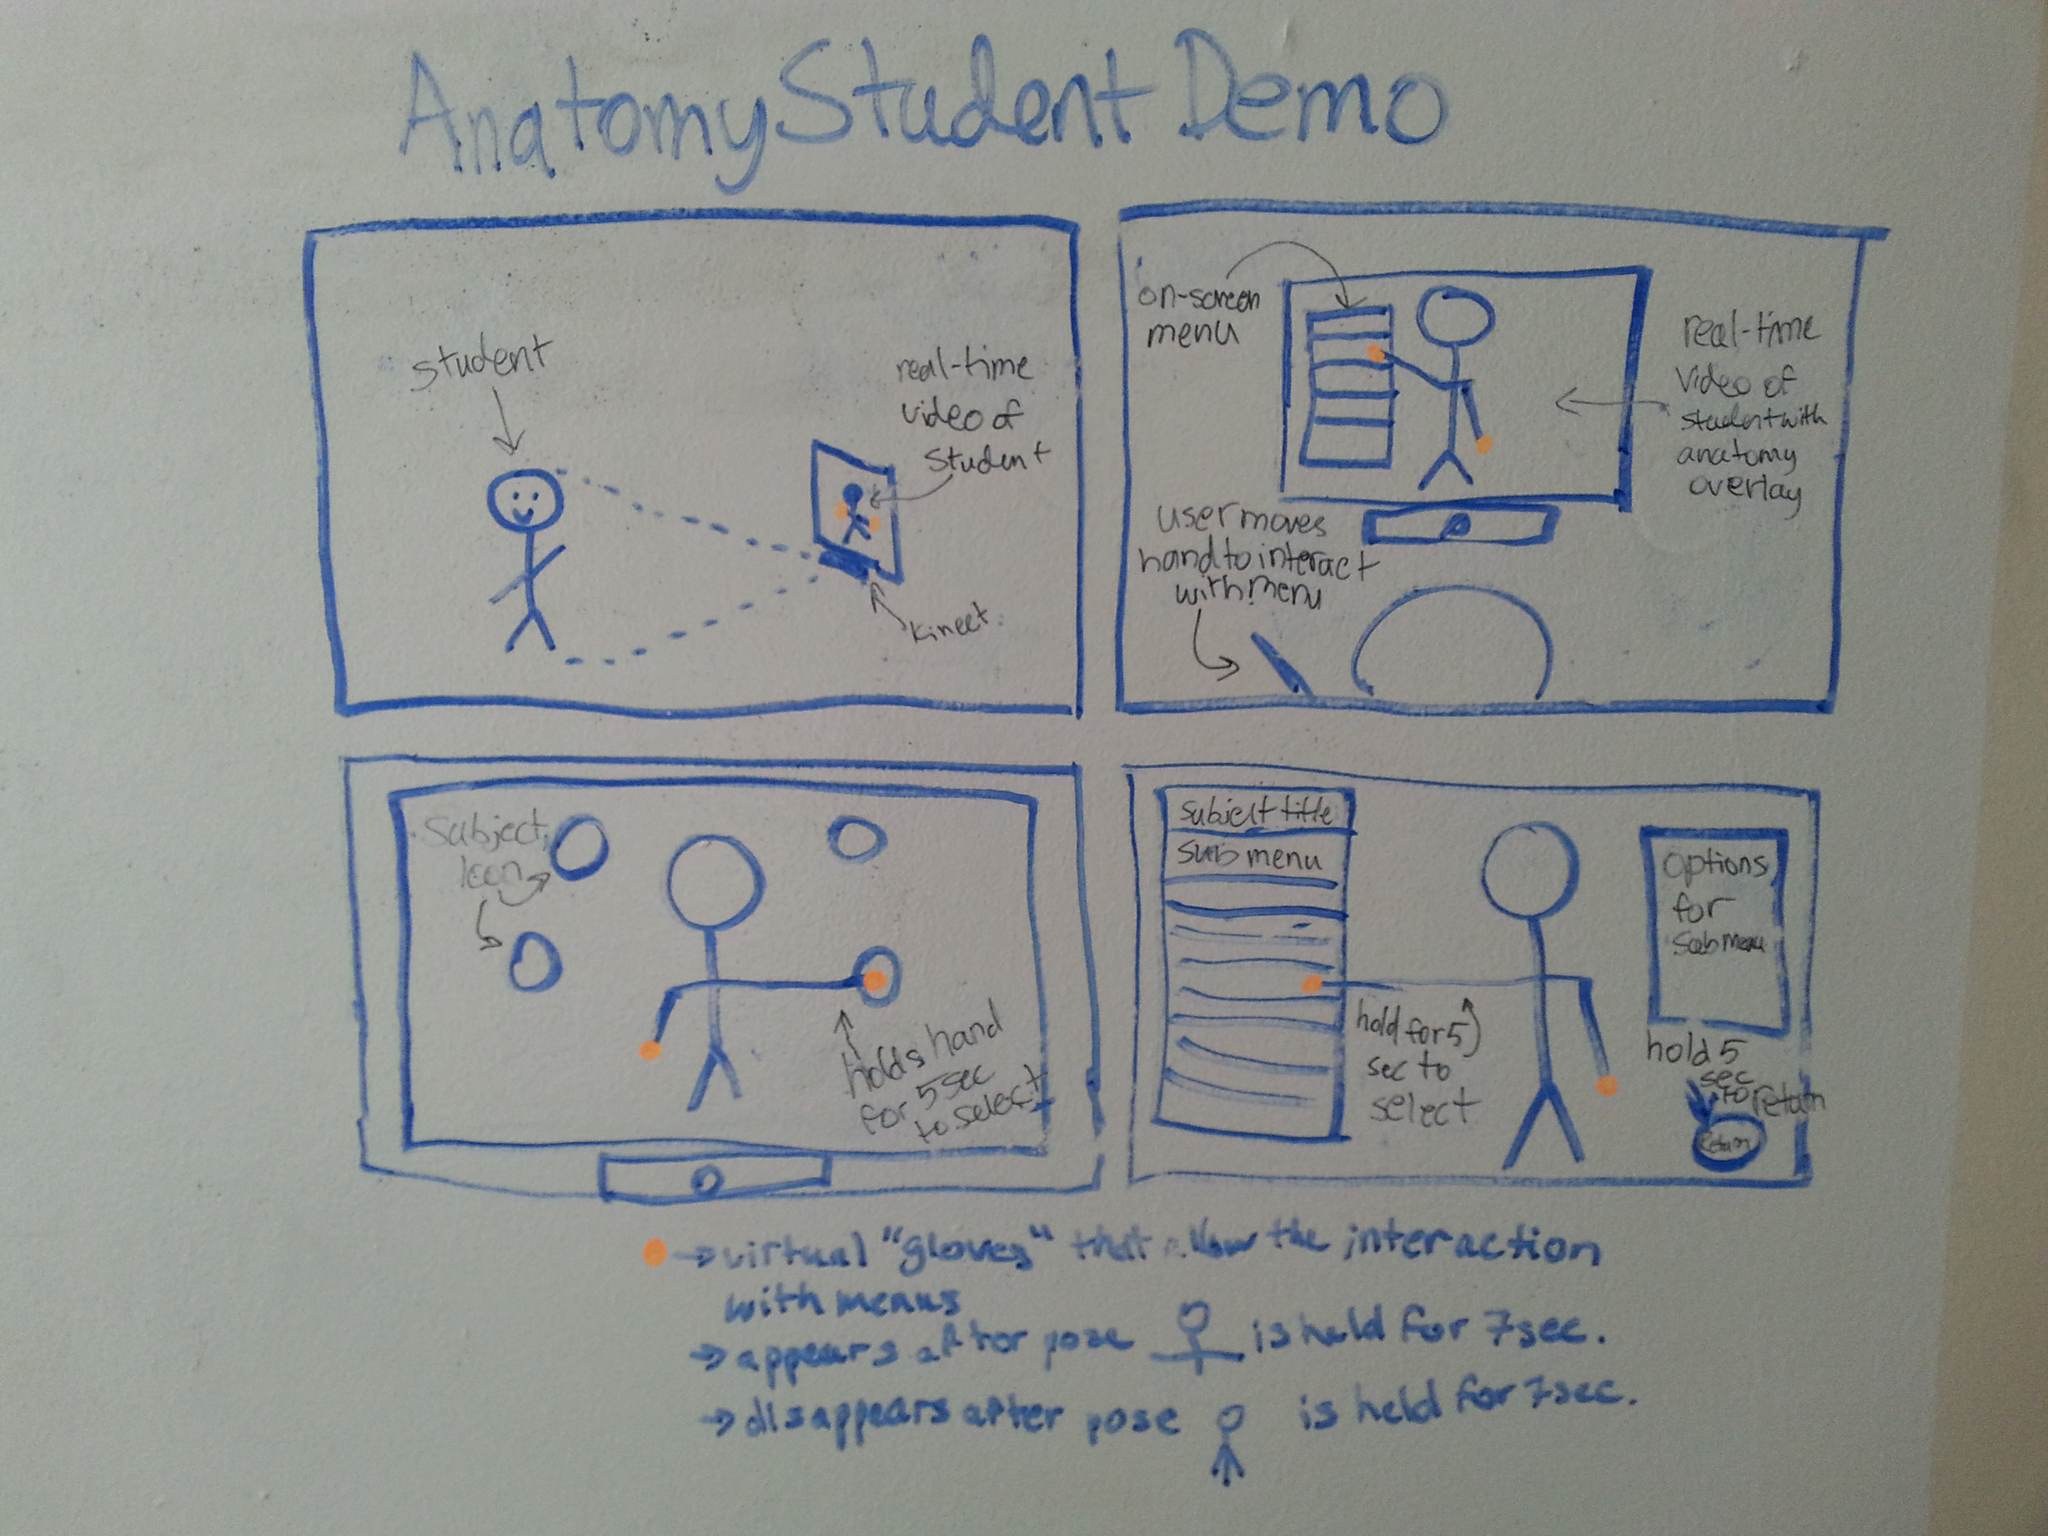 Anatomy Student Demo
student
real-time
video of
student
Kinect.
on-screen
menu
real-time
video of
student with
anatomy
overlay
user moves
hand to interact
with menu
Subject
Icon
holds hand
for 5 sec
to select
subject title
sub menu
hold for 5
sec to
select
options
for
sub menu
hold 5
sec
to return
Return
→ virtual "gloves" that allow the interaction
with menus
→ appears after pose is held for 7sec.
→ disappears after pose is held for 7sec.